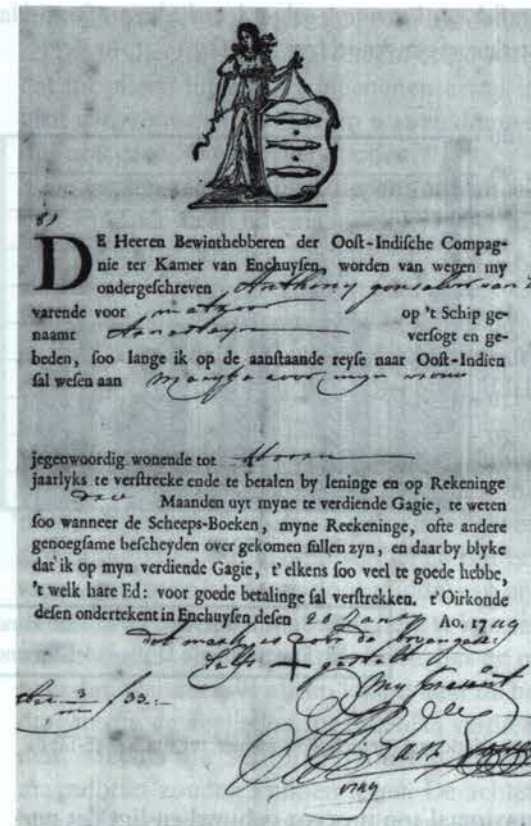 DE Heeren Bewinthebberen der Oost-Indische Compag-
nie ter Kamer van Enchuysen, worden van wegen my
ondergeschreven Anthony gonsalvis van
varende voor matroos op 't Schip ge-
naamt versogt en ge-
beden, soo lange ik op de aanstaande reyse naar Oost-Indien
sal wesen aan Marytje voor myn vrouw
jegenwoordig wonende tot Hooren
jaarlyks te verstrecke ende te betalen by leninge en op Rekeninge
drie Maanden uyt myne te verdiende Gagie, te weten
soo wanneer de Scheeps-Boeken, myne Reekeninge, ofte andere
genoegsame bescheyden over gekomen sullen zyn, en daar by blyke
dat ik op myn verdiende Gagie, t'elkens soo veel te goede hebbe,
't welk hare Ed: voor goede betalinge sal verstrekken. t'Oirkonde
desen ondertekent in Enchuysen desen 20 Janry Ao. 1749
dit merk is door de bovengede:
selfs gestelt
My present
3
m f 33:-